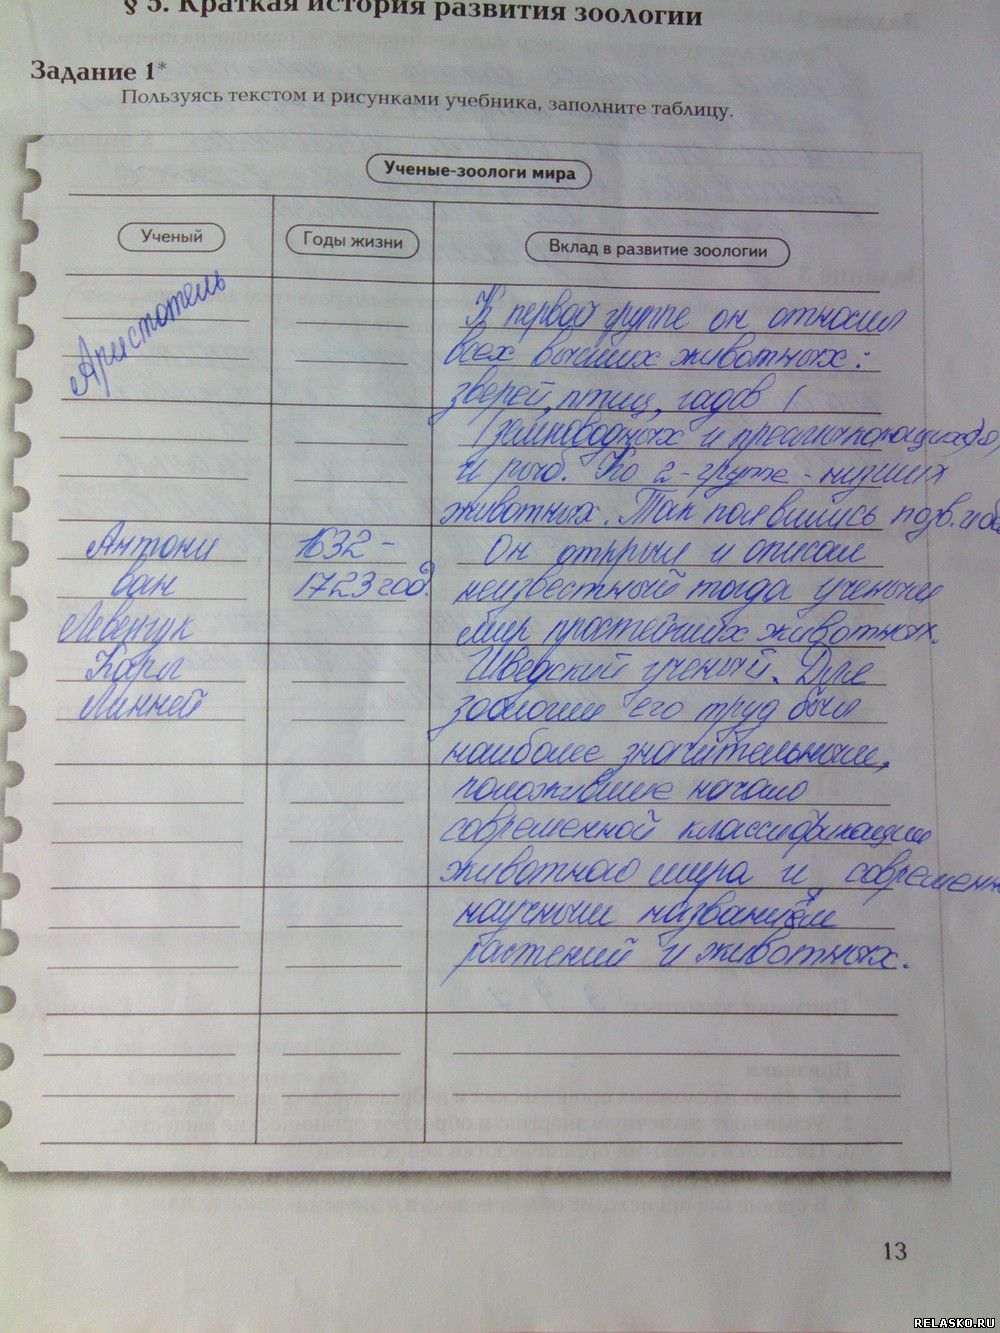 § 5. Краткая история развития зоологии
Задание 1*
Пользуясь текстом и рисунками учебника, заполните таблицу.
Ученые-зоологи мира
Ученый
Годы жизни
Вклад в развитие зоологии
Аристотель
К первой группе он относил
всех высших животных:
зверей, птиц, гадов (
(земноводных и пресмыкающихся),
и рыб. Ко 2-группе - низших
животных. Так появились позв. и без
Антони
ван
Левенгук
1632 -
1723 год.
Он открыл и описал
неизвестный тогда ученым
мир простейших животных.
Карл
Линней
Шведский ученый. Для
зоологии его труд был
наиболее значительным,
положившие начало
современной классификации
животного мира и современн
научным названием
растений и животных.
13
RELASKO.RU